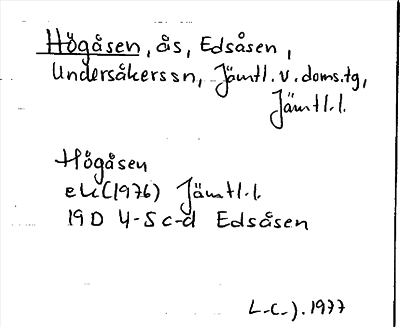 Högåsen, ås, Edsåsen,
Undersåkers sn, Jämtl. v. doms. tg,
Jämtl. l.
Högåsen
ek (1976) Jämtl. l.
19D 4-5 c-d Edsåsen
L-C-J. 1977